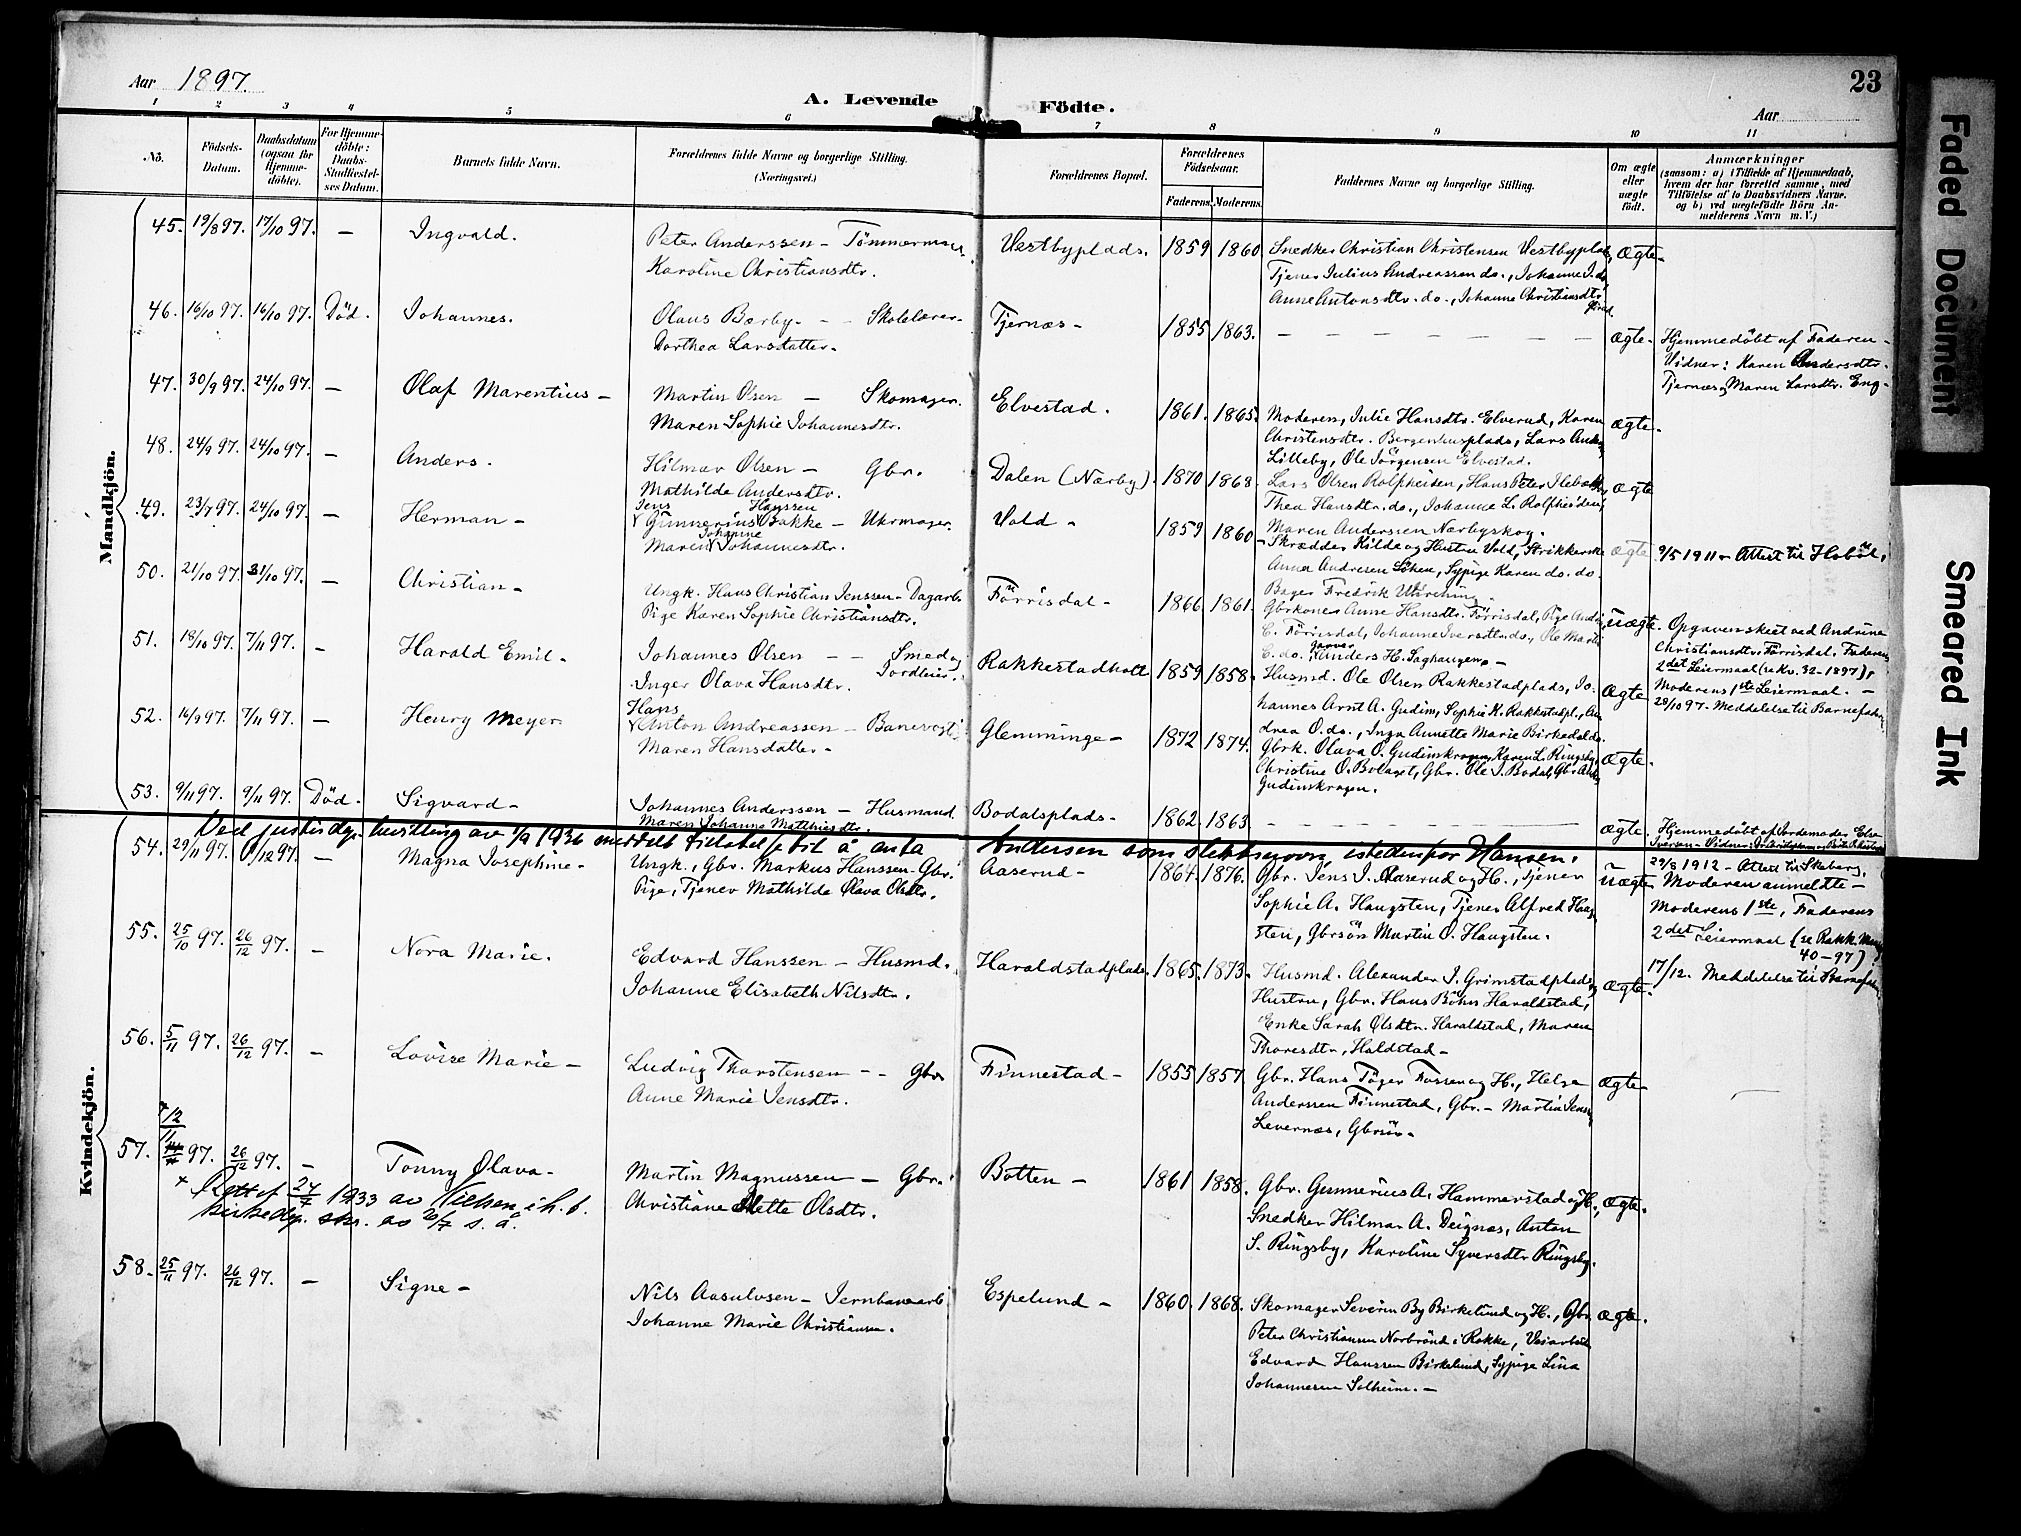 Aar 1897.
A. Levende Födte.
23
Aar
1 2 3 4 5 6 7 8 9 10 11
No.
Födsels-Datum.
Daabsdatum (ogsaa for Hjemme-döbte).
For Hjemme-döbte: Daabs-Stadfæstel-ses Datum.
Barnets fulde Navn.
Forældrenes fulde Navne og borgerlige Stilling. (Næringsvei.)
Forældrenes Bopæl.
Forældrenes Födselsaar.
Faderens. Moderens.
Faddernes Navne og borgerlige Stilling.
Om ægte eller uægte födt.
Anmærkninger
(saasom: a) i Tilfælde af Hjemmedaab, hvem der har forrettet samme, med Tilföielse af to Daabsvidners Navne, og b) ved uægtefödte Börn Anmelderens Navn m. V.)
Mandkjön.
45. 19/8 97. 17/10 97. — Ingvald. Peter Anderssen — Tömmermand. Vestbyplads. 1859 1860 Snedker Christian Christensen Vestbyplads, Ægte.
Karoline Christiansdtr. Tjener Julius Andreassen do., Johanne J. do
Anne Antonsdtr. do., Johanne Christiansdtr
46. 16/10 97. 16/10 97. Död. Johannes. Olaus Bærby — Skolelærer. Tjernæs — 1855 1863. — ægte. Hjemmedöbt af Faderen —
Dorthea Larsdatter. Vidner: Karen Andersdtr.
Tjernæs, Maren Larsdtr. Eng —
47. 30/9 97. 24/10 97. — Olaf Marentius — Martin Olsen — Skomager. Elvestad. 1861. 1865. Moderen, Julie Hansdtr. Elverud, Karen ægte.
Maren Sophie Johannesdtr. Christensdtr. Bergenhusplads, Lars Anders
Lilleby, Ole Jörgensen Elvestad.
48. 24/9 97. 24/10 97. — Anders. Hilmar Olsen — Gbr. Dalen (Nærby). 1870 1868. Lars Olsen Rolfheien, Hans Peter ægte
Mathilde Andersdtr. Thea Hansdtr. do., Johanne L.
Maren Andersen Nærbyskog.
49. 23/7 97. 24/10 97. — Herman — Jens Gunnerius Hanssen Bakke — Uhrmager. Vold — 1859 1860 — Skrædder Kilde og Hustru Vold, Strikkerske ægte 9/5 1911 — Attest til Haböl.
Maren Johanne Johannesdtr. Anna Andresen Söhen, Sypige Karen do. do.
Bager Fredrik
50. 21/10 97. 31/10 97. — Christian — Ungk. Hans Christian Jenssen — Dagarb. Förrisdal — 1866 1861. Gbrkone Anne Hansdtr. Förrisdal, Pige Andrine uægte. Opgaven skeet ved Andrine
Pige Karen Sophie Christiansdtr. C. Förrisdal, Johanne Iversdtr. do., Ole Martin Christiansdtr. Förrisdal. Faderens
C. do., Anders H. Saghaugen. — 2det Leiermaal (se No. 32-1897),
Moderens 1ste Leiermaal. —
28/10 97. Meddelelse til Barnefader.
51. 18/10 97. 7/11 97. — Harald Emil. Johannes Olsen — Smed og Jordleier. Rakkestadholt 1859 1858. Husmd. Ole Olsen Rakkestadplads, Jo- Ægte
Inger Olava Hansdtr. hannes Arnt A. Gudim, Sophie K. Rakkestadpl., An-
drea O. do., Inga Annette Marie Birkedal do.
52. 16/9 97. 7/11 97. — Henry Meyer Hans Anton Andreassen — Banevogter. Glemminge — 1872 1874. Gbrk. Olava O. Gudimkragen, Karen L. Ringsby, ægte.
Maren Hansdatter — Christine O. Bolaget, Gbr. Ole J. Bodal, Gbr.
Gudimkragen.
53. 9/11 97. 9/11 97. Död. Sigvard — Johannes Anderssen — Husmand Bodalsplads — 1862. 1863 — ægte. Hjemmedöbt af Jordemoder
Maren Johanne Matthiesdtr.
Ved justisdep. bevilling av 1/9 1936 meddelt tilladelse til å anta Andersen som slektsnavn, istedenfor Hansen.
Kvindekjön.
54. 29/11 97. 6/12 97. — Magna Josephine — Ungk., Gbr. Markus Hanssen — Gbr. Aaserud — 1864. 1876. Gbr. Jens J. Aaserud og H., Tjener uægte 29/8 1912 — Attest til Skeberg.
Pige, Tjener Mathilde Olava Olsdtr. Sophie A. Haugsten, Tjener Alfred Haug- Moderen anmeldte —
sten, Gbrsön Martin O. Haugsten. Moderens 1ste, Faderens
2det Leiermaal (se Rakk. Mand
40-97)
17/12. Meddelelse til Barnefader
55. 25/10 97. 26/12 97. — Nora Marie. Edvard Hanssen — Husmd. Haraldstadplads. 1865. 1873. Husmd. Alexander J. Grimstadplads, ægte.
Johanne Elisabeth Nilsdtr. Hustru, Gbr. Hans Böhn Haraldstad,
Enke Sarah Olsdtr. Haraldstad, Maren
Thoresdtr, Haldstad —
56. 5/11 97. 26/12 97. — Lovise Marie — Ludvig Thorstensen — Gbr Finnestad — 1855 1857. Gbr. Hans Töger Fossen og H., Helge ægte.
Anne Marie Jensdtr. Anderssen Finnestad, Gbr. — Martin Jensen
Levernæs, Gbrsön —
57. 7/12 11 97. 26/12 97. — Tonny Olava — Martin Magnussen — Gbr. Botten — 1861 1858. Gbr. Gunnerius A. Hammerstad og H., ægte.
Christiane Mette Olsdtr. Snedker Hilmar A. Deignæs, Anton
S. Ringsby, Karoline Syversdtr Ringsby.
Rettet 27/7 1933 av Nielsen i h. t.
kirkedep. skr. av 20/7 s. å.
58. 25/11 97. 26/12 97. — Signe — Nils Aasulvsen — Jernbanearb. Espelund — 1860. 1868. Skomager Severin By Birkelund og H., Gbr ægte.
Johanne Marie Christiansen. Peter Christiansen Norbrönd i Rakke, Veiarbeid
Edvard Hanssen Birkelund, Sypige Lina
Johannesen Solheim. —
Faded Document
Smeared Ink